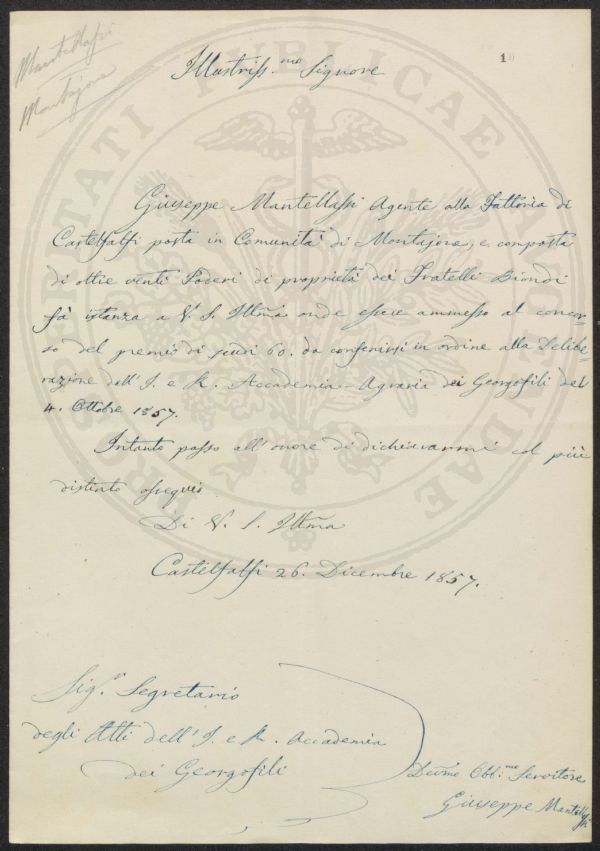 Mantellassi
Montajone
1
Illustriss.mo Signore
Giuseppe Mantellassi Agente alla Fattoria di
Castelfalfi posta in Comunità di Montajone, e composta
di oltre venti Poderi di proprietà dei Fratelli Biondi
fà istanza a V. S. Illma onde essere ammesso al concor-
so del premio di scudi 60. da conferirsi in ordine alla Delibe-
razione dell'I. e R. Accademia-Agraria dei Georgofili del
4. Ottobre 1857.
Intanto passo all'onore di dichiararmi col più
distinto ossequio
Di V. S. Illma
Castelfalfi 26. Dicembre 1857.
Sig.r Segretario
degli Atti dell'I. e R. Accademia
dei Georgofili
Devmo Obb.mo Servitore
Giuseppe Mantellassi
PROSPERITATI PUBLICAE AUGENDAE